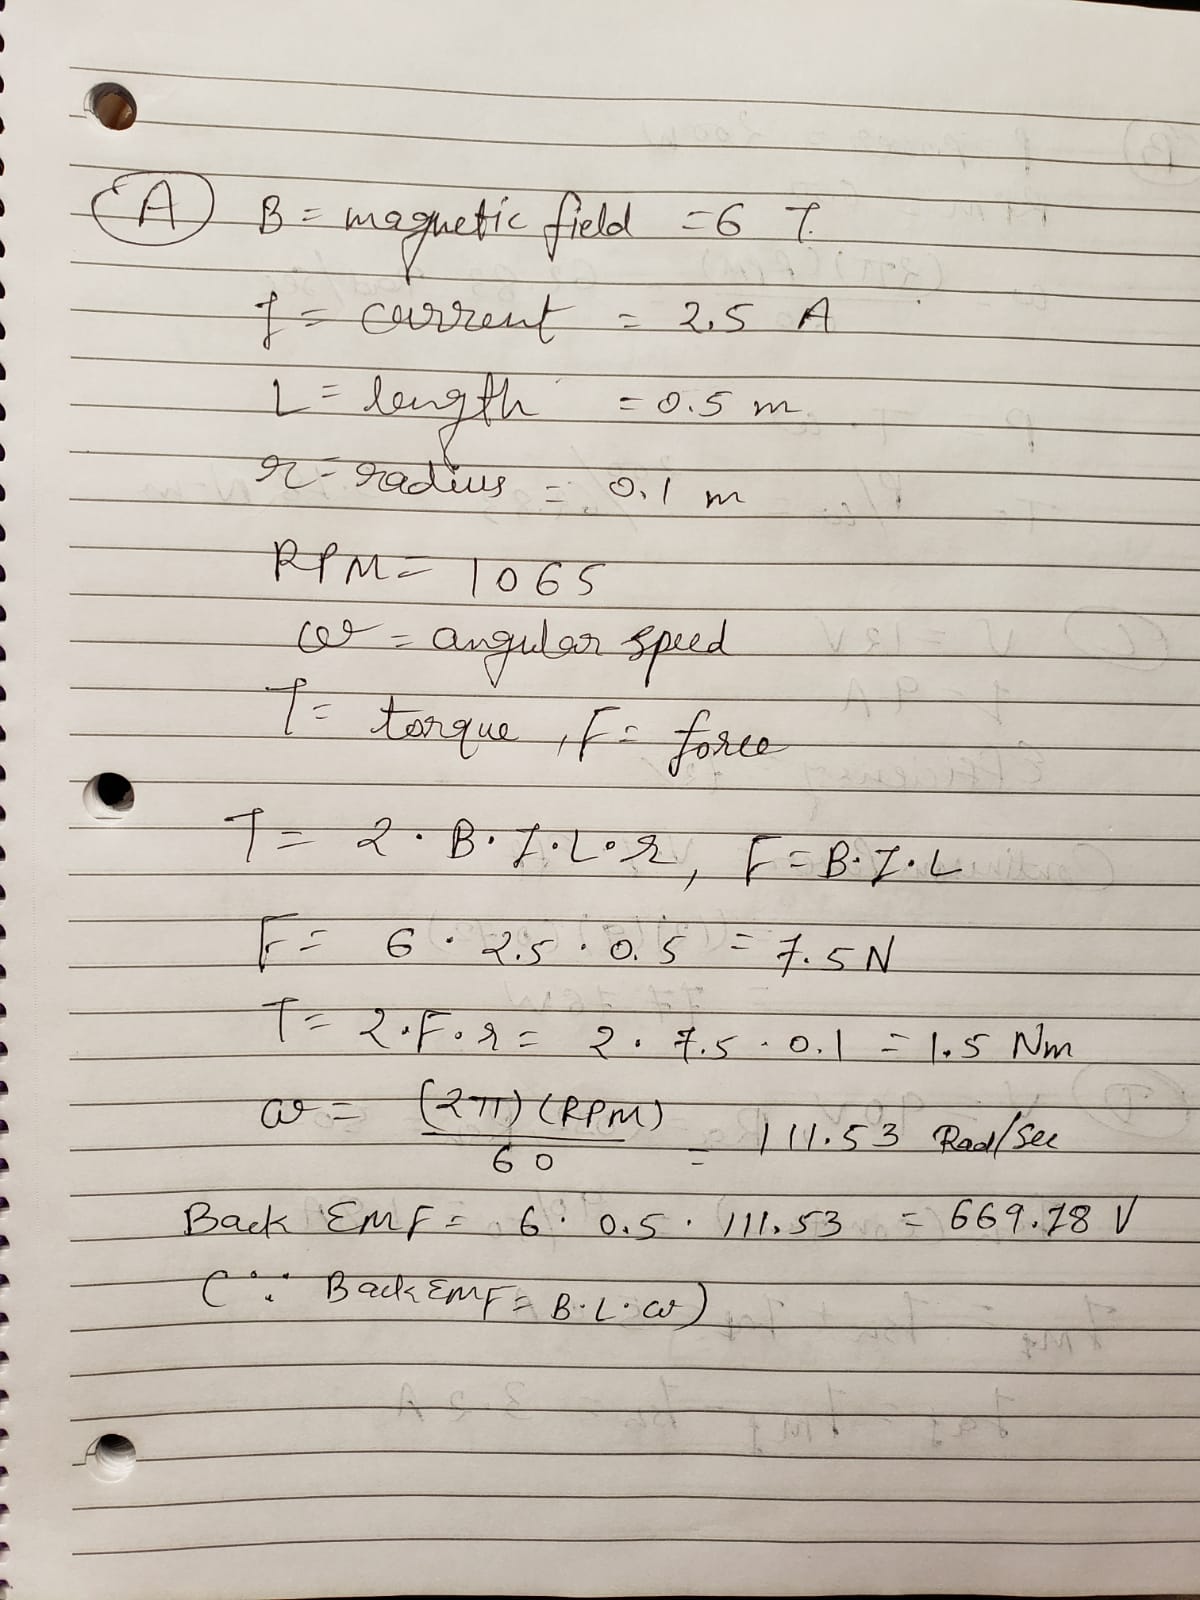 A B = magnetic field = 6 T.
I = current = 2.5 A
L = length = 0.5 m
r = radius = 0.1 m
RPM = 1065
ω = angular speed
T = torque, F = force
T = 2 · B · I · L · r, F = B · I · L
F = 6 · 2.5 · 0.5 = 7.5 N
T = 2 · F · r = 2 · 7.5 · 0.1 = 1.5 Nm
ω = (2π) (RPM) / 60 = 111.53 Rad/Sec
Back EMF = 6 · 0.5 · 111.53 = 669.18 V
(∵ Back EMF = B · L · ω)